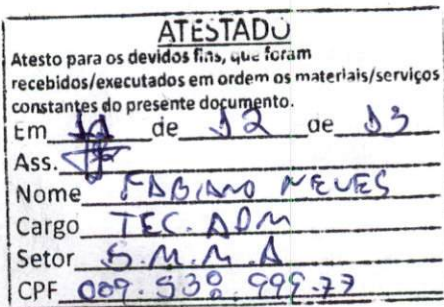 ATESTADO
Atesto para os devidos fins, que foram
recebidos/executados em ordem os materiais/serviços
constantes do presente documento.
Em de 12 de 13
Ass.
Nome FABIANO NEVES
Cargo TEC. ADM
Setor S.M.M.A
CPF 009.539.999-77